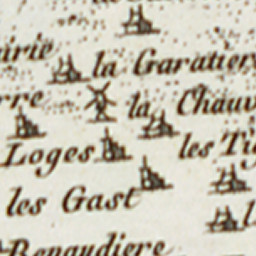 irie la Garatier
rre la Chauv
Loges les Ti
les Gast
Renaudiere